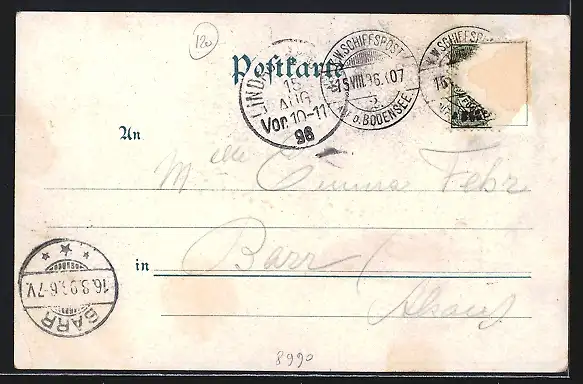 120
Postkarte
LINDAU
15
AUG
Vor. 10-11
96
K.W. SCHIFFSPOST
15 VIII 96 X07
5
AUF D. BODENSEE.
W. SCHIFFSPOST
15
An Mlle Emma Fehr
in Barr
Alsace
BARR
16.8.96.6-7V.
8990